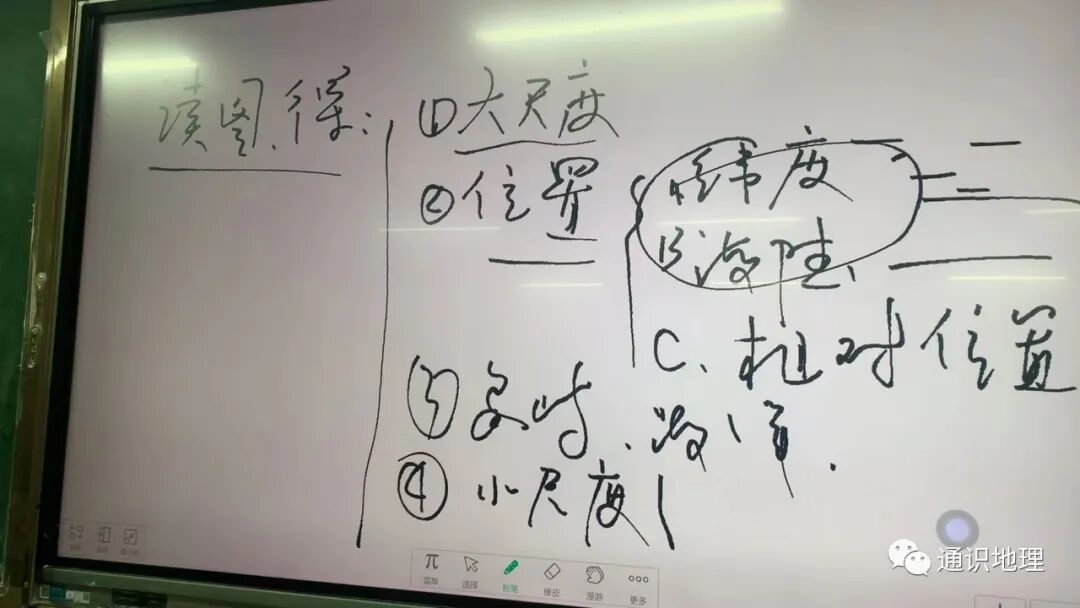 读图、得:
①大尺度
②位置
纬度
B海陆、
C、相对位置
③
④小尺度
菜单
选择
粉笔
橡皮
漫游
更多
通识地理